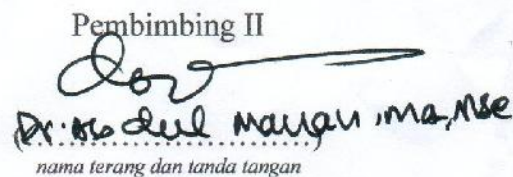 Pembimbing II
Dr. Abdul Manan, MA, MSc
nama terang dan tanda tangan